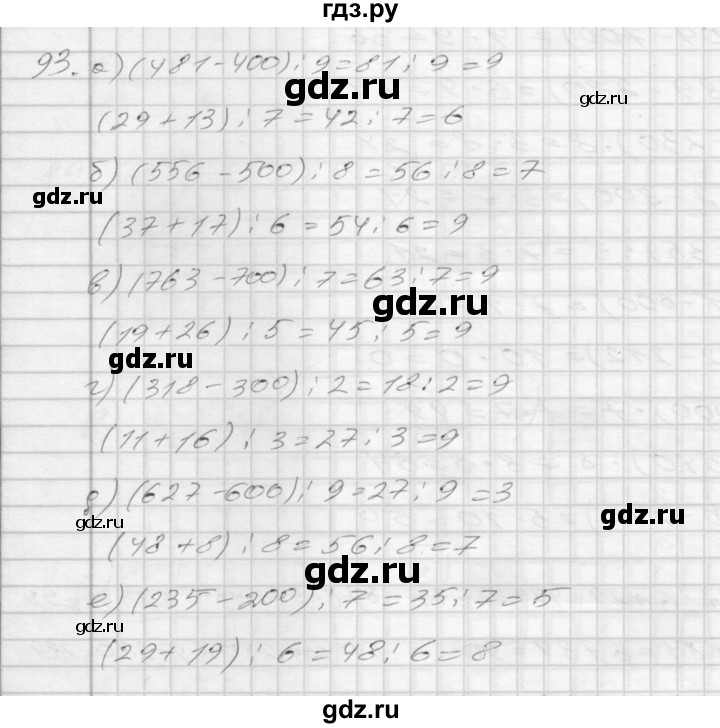 гдз.ру
93. а) (481-400) : 9 = 81 : 9 = 9
gdz.ru
gdz.ru
(29+13) : 7 = 42 : 7 = 6
б) (556-500) : 8 = 56 : 8 = 7
gdz.ru
(37+17) : 6 = 54 : 6 = 9
в) (763-700) : 7 = 63 : 7 = 9
gdz.ru
(19+26) : 5 = 45 : 5 = 9
gdz.ru
г) (318-300) : 2 = 18 : 2 = 9
(11+16) : 3 = 27 : 3 = 9
д) (627-600) : 9 = 27 : 9 = 3
gdz.ru
gdz.ru
(48+8) : 8 = 56 : 8 = 7
е) (235-200) : 7 = 35 : 7 = 5
gdz.ru
(29+19) : 6 = 48 : 6 = 8
gdz.ru